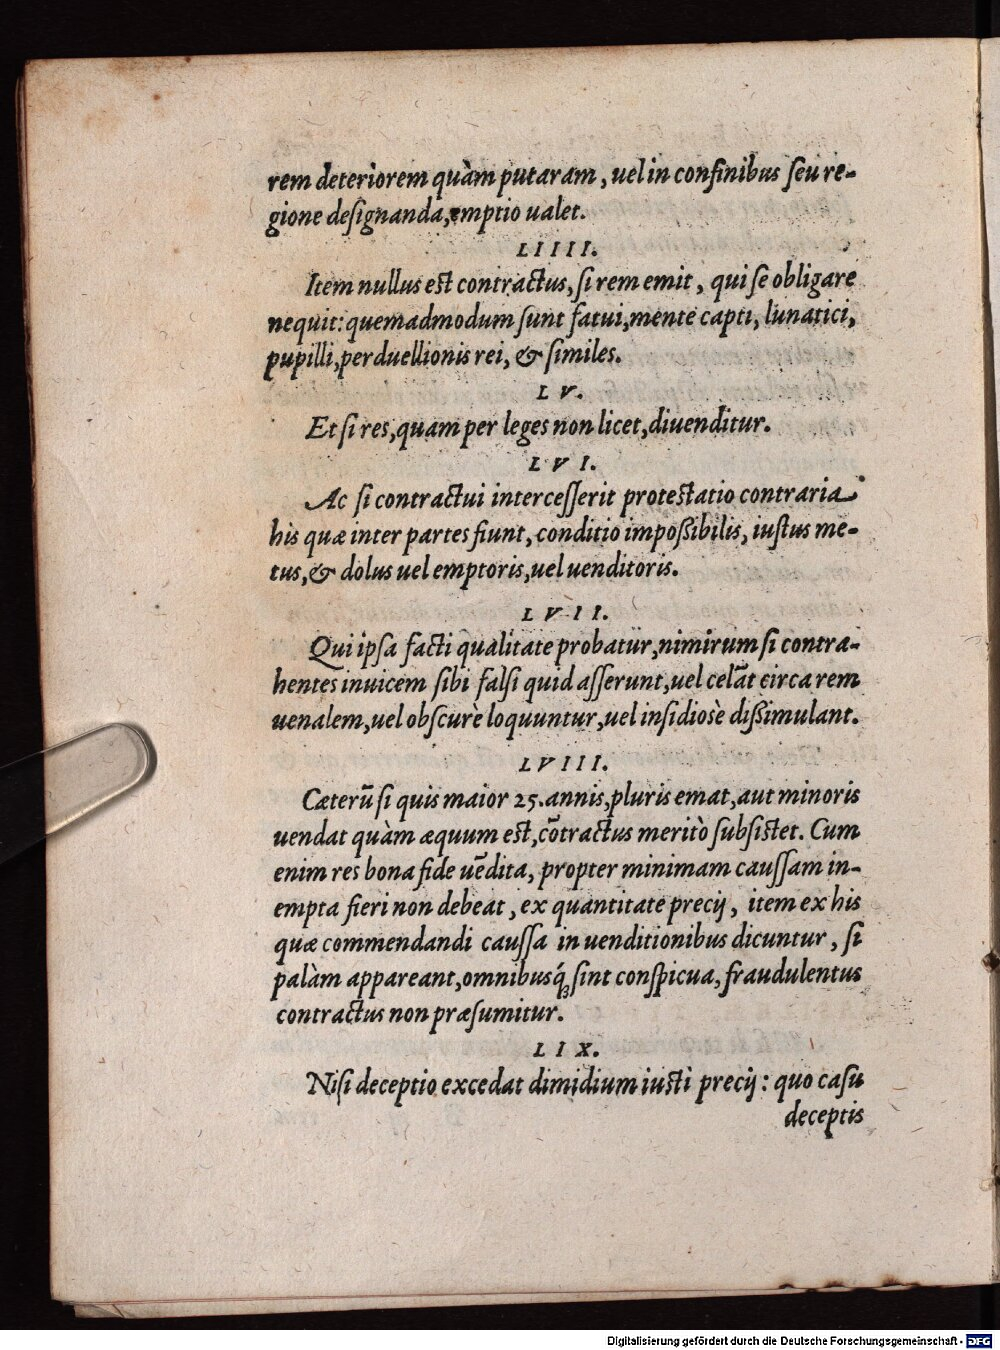 rem deteriorem quàm putaram, uel in confinibus ſeu re-
gione deſignanda, emptio ualet.
LIIII.
Item nullus est contractus, ſi rem emit, qui ſe obligare
nequit: quemadmodum ſunt fatui, mente capti, lunatici,
pupilli, perduellionis rei, & ſimiles.
LV.
Et ſi res, quam per leges non licet, diuenditur.
LVI.
Ac ſi contractui interceſſerit protestatio contraria
his quæ inter partes fiunt, conditio impoßibilis, iuſtus me-
tus, & dolus uel emptoris, uel uenditoris.
LVII.
Qui ipſa facti qualitate probatur, nimirum ſi contra-
hentes inuicem ſibi falſi quid aſſerunt, uel celāt circa rem
uenalem, uel obſcurè loquuntur, uel inſidioſè dißimulant.
LVIII.
Cæterū ſi quis maior 25. annis, pluris emat, aut minoris
uendat quàm æquum est, cōtractus meritò ſubſistet. Cum
enim res bona fide uēdita, propter minimam cauſſam in-
empta fieri non debeat, ex quantitate precij, item ex his
quæ commendandi cauſſa in uenditionibus dicuntur, ſi
palàm appareant, omnibusq́ꝫ ſint conſpicua, fraudulentus
contractus non præſumitur.
LIX.
Niſi deceptio excedat dimidium iusti precij: quo caſu
deceptis
Digitalisierung gefördert durch die Deutsche Forschungsgemeinschaft - DFG